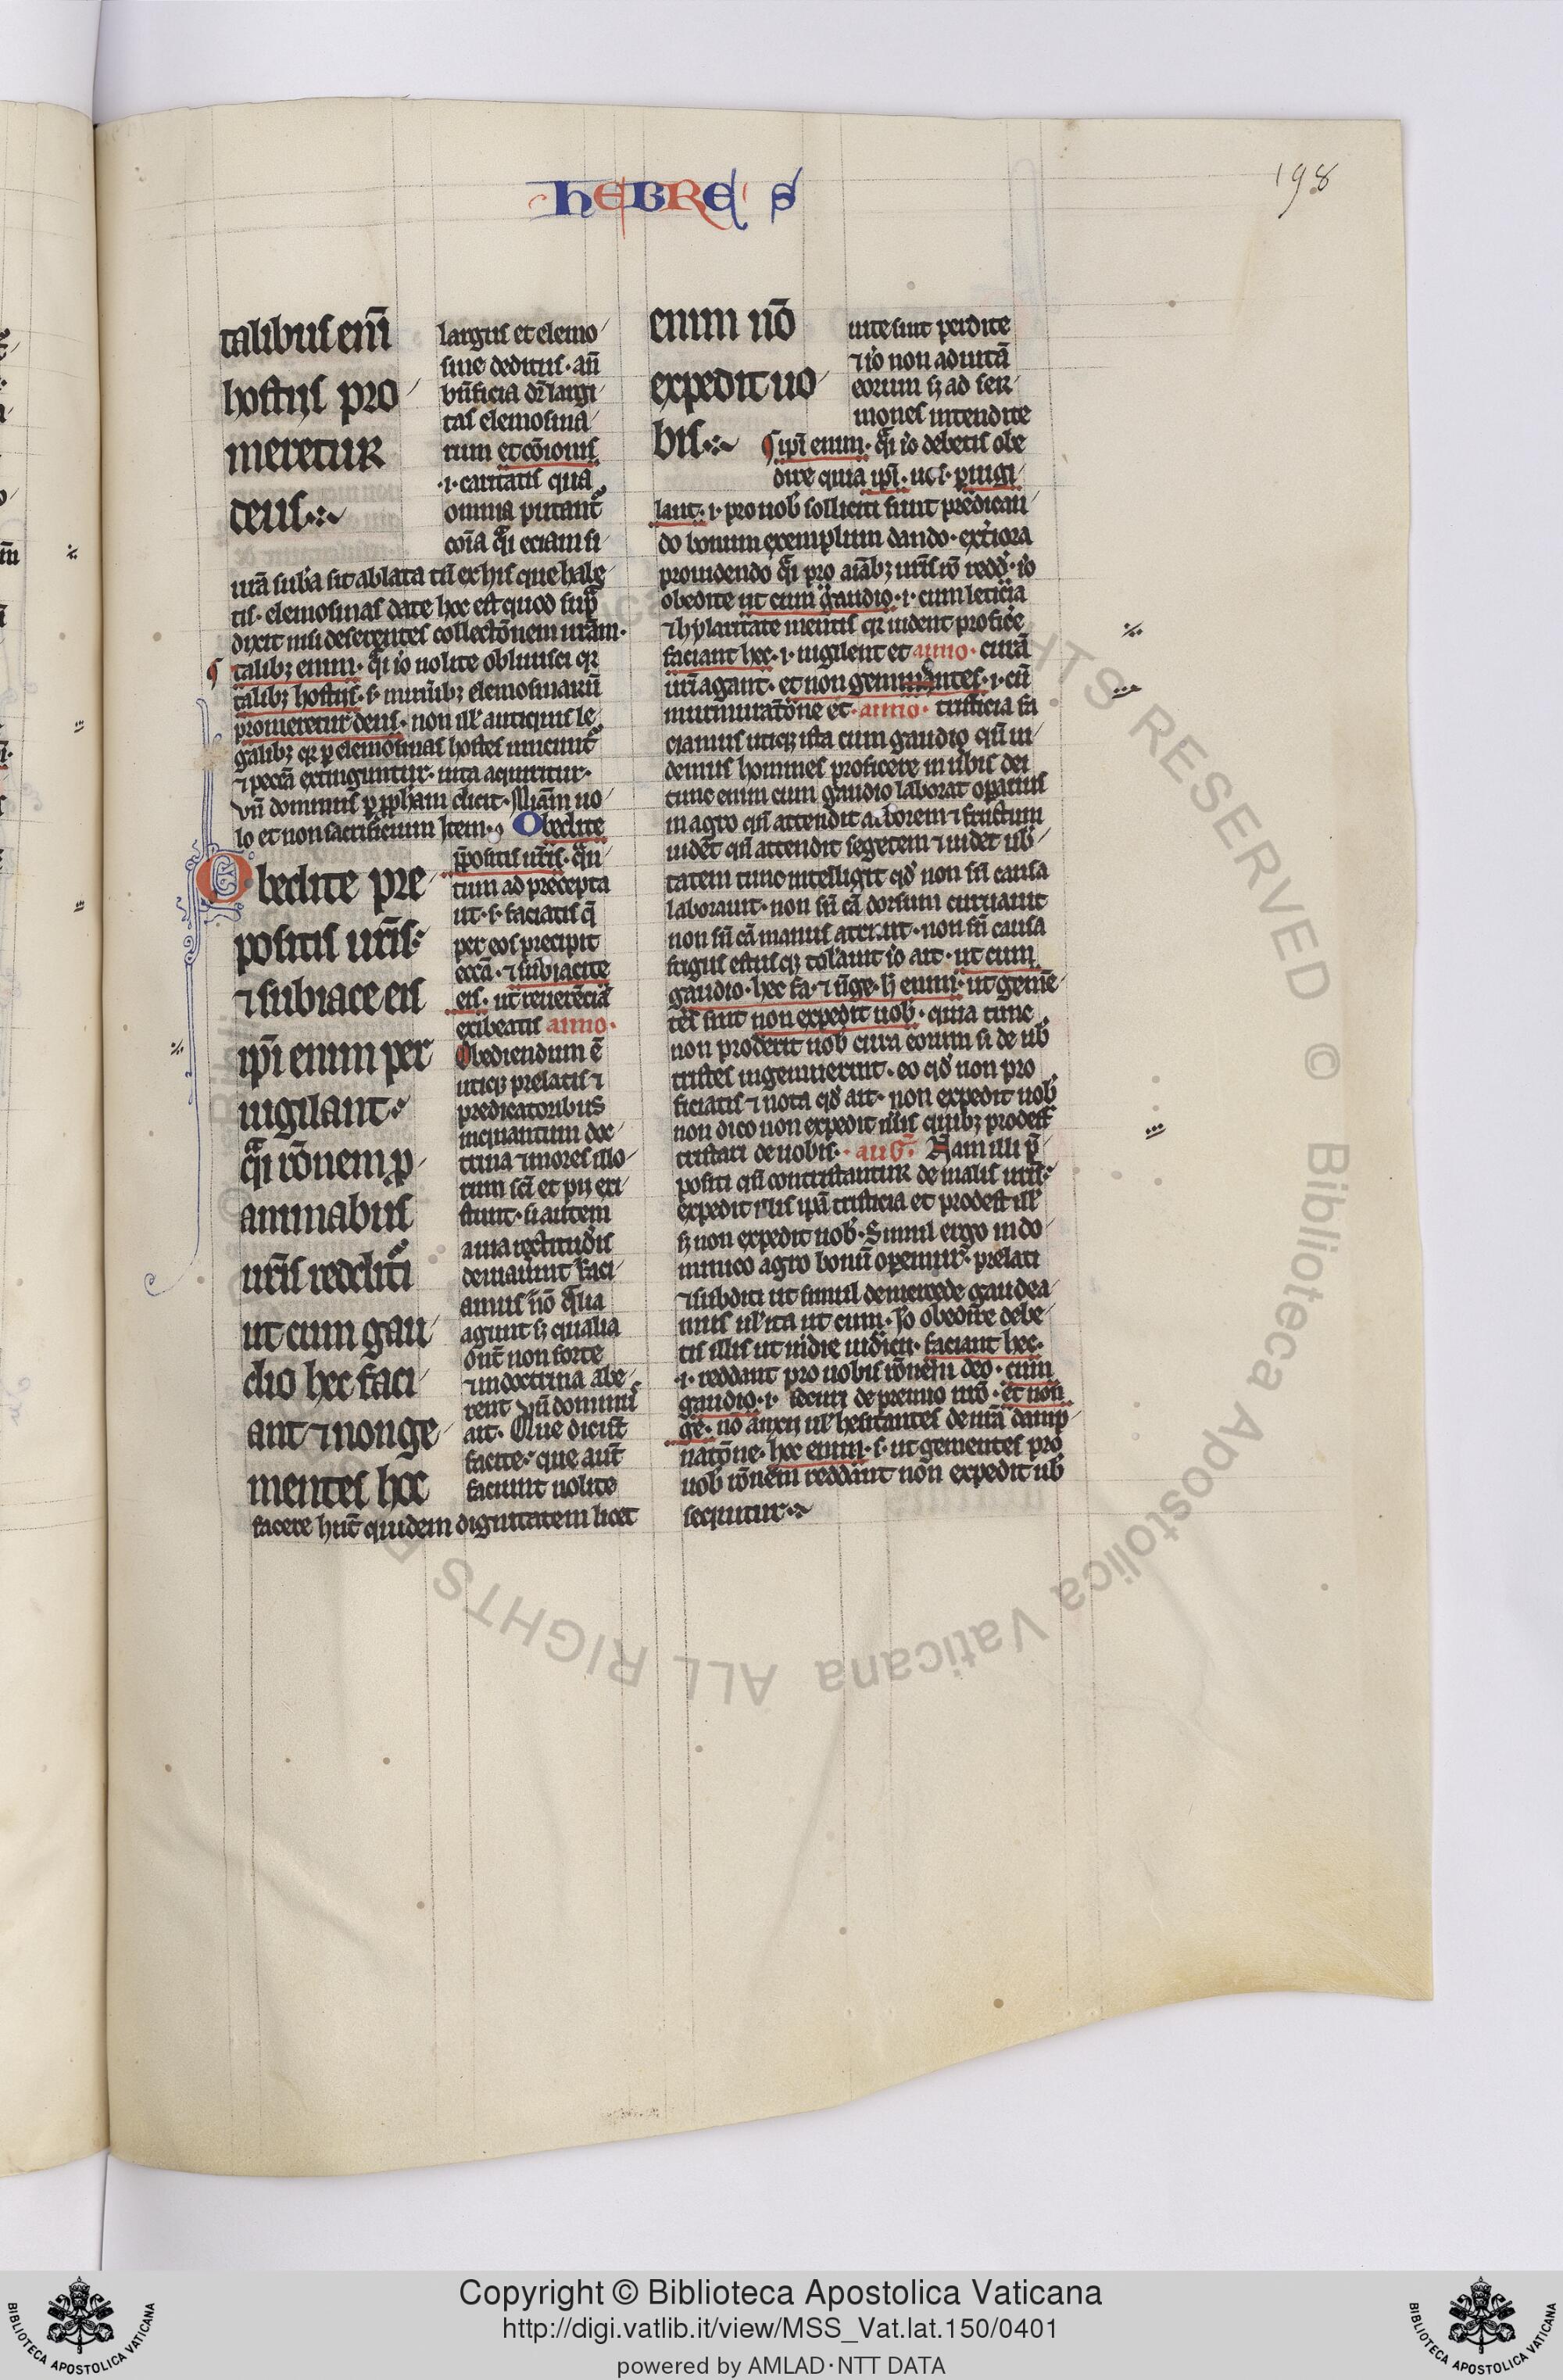 HEBRE S
198
talibus eni̅
hostiis pro
meretur
deus
largus et elemo
sine deditus · un̅
bn̅ficia dr̅ largi
tas elemosina
rum et co̅ionis
·i· caritatis qua
omnia putant̅
co̅ia q̅i eciam si
ura̅ sub̅a sit ablata tn̅ ex his que habe
tis · elemosinas date hoc est quod sup̅
dixit nisi deserentes collecto̅nem ura̅m ·
talibꝫ enim · q̅i io̅ nolite obliuisci qr
talibꝫ hostiis · s · muni̅bꝫ elemosinaru̅
promeretur deus · non ill̅ antiquis le
galibꝫ qr ꝑ elemosinas hostes uincunt̅
⁊ pecca̅ extinguntur · uita aquiritur ·
Vn̅ dominus ꝑ ꝓpham dicit · Mi̅am uo
lo et non sacrificium Item · Obedite
Obedite pre
positis ur̅is
⁊ subiace eis
ipi̅ enim per
uigilant
q̅i ro̅nem ꝓ
animabus
ur̅is reddit̅i
ut cum gau
dio hec faci
ant ⁊ non ge
mentes hoc
p̅positis ur̅is · q̅n
tum ad precepta
ut · s · faciatis q̅
per eos precipit
ecc̅a · ⁊ subiacite
eis · ut reuere̅cia̅
exibeatis anno ·
Obediendum e̅
utiqꝫ prelatis ⁊
predicatoribus
inquantum doc
trina ⁊ mores illo
rum sc̅i et pii exi
stunt · si autem
a uia rectitudi̅s
deuiauint faci
amus no̅ qualia
agunt sꝫ qualia
dnt̅ non forte
⁊ in doctrina abe
rent Vn̅ dominus
ait · Que dicu̅t
facite · que aut̅
faciunt nolite
facere hn̅t quidem dignitatem licet
enim no̅
expedit uo
bis
uite sint perdite
⁊ io̅ non ad uita̅
eorum sꝫ ad ser
mones intendite
ipi̅ enim · q̅i io̅ debetis obe
dire quia ipi̅ · ꝑuigi
lant · i · pro uob̅ solliciti sunt predican
do bonum exemplum dando · ext̅iora
prouidendo q̅i pro aia̅bꝫ ur̅is ro̅ redd̅ · io̅
obedite ut cum gaudio · i · cum leticia
⁊ hylaritate mentis qr uident profice̅
faciant hec · i · uigilent et anno · cura̅
ur̅i agant · et non gementes · i · cu̅
murmurato̅ne et · anno · tristicia fa
ciamus utiqꝫ ista cum gaudio qn̅ ui
demus homines proficere in ubis dei
tunc enim cum gaudio laborat oparius
in agro qn̅ attendit arborem ⁊ fructum
uide̅t qn̅ attendit segetem ⁊ uidet ub̅
tatem tunc intelligit qd̅ non sn̅ causa
laborauit · non sn̅ ca̅ dorsum curuauit
non sn̅ ca̅ manus atriuit · non sn̅ causa
frigus estusqꝫ tol̅auit io̅ ait · ut cum
gaudio · hec fa̅ · ⁊ n̅ ge · h̅ enim · ut geme̅
tes sint non expedit uob̅ · quia tunc
non proderit uob̅ cura eorum si de ub̅
tristes ingemuerint · eo qd̅ non pro
ficiatis ⁊ nota qd̅ ait · non expedit uob̅
non dico non expedit illis quibꝫ prodest̅
tristari de uobis · aug̅ · Nam illi p̅
positi qn̅ contristantur de malis ur̅is
expedit illis ipa̅ tristicia et prodest ill̅
sꝫ non expedit uob̅ · Simul ergo in do
minico agro bonu̅ opemur · prelati
⁊ subditi ut simul de mercede gaudea
mus ul̅ ita ut cum · Io̅ obedire debe
tis illis ut in die iudicii · faciant hec ·
·i· reddant pro uobis ro̅nem deo · cum
gaudio · i · securi de premio uro̅ · et non
ge̅ · no̅ anxii ul̅ hesitantes de ura̅ damp
nato̅ne · hoc enim · s · ut gementes pro
uob̅ ro̅nem reddant non expedit ub̅
sequitur
Copyright © Biblioteca Apostolica Vaticana
http://digi.vatlib.it/view/MSS_Vat.lat.150/0401
powered by AMLAD·NTT DATA
BIBLIOTECA APOSTOLICA VATICANA
BIBLIOTECA APOSTOLICA VATICANA
© Biblioteca Apostolica Vaticana ALL RIGHTS RESERVED